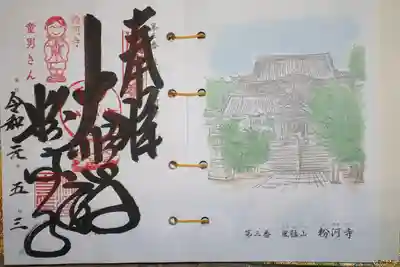 奉拝
大悲殿
粉河寺
令和元 五 三
粉河寺
童男さん
第三番 風猛山 粉河寺